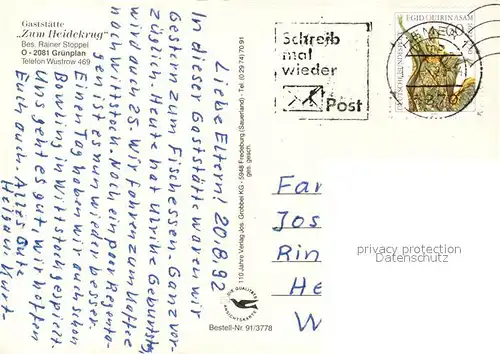 Gaststätte
"Zum Heidekrug"
Bes. Rainer Stoppel
O - 2081 Grünplan
Telefon Wustrow 469
Liebe Eltern! 20.8.92
In dieser Gaststätte waren wir
Gestern zum Fischessen. Ganz vor-
züglich. Heute hat Ulrike Geburtstag
wird auch 25. Wir fahren zum Kaffee
nach Wittstock. Nach ein paar Regenta-
gen ist es nun wieder besser.
Einen Tag haben wir auch schon
Bowling in Wittstock gespielt.
Uns geht es gut, wir hoffen
Euch auch. Alles Gute
Heiga u. Kurt.
110 Jahre Verlag Jos. Grobbel KG - 5948 Fredeburg (Sauerland) - Tel. (0 29 74) 70 91
ges. gesch.
DIE QUALITÄTS
ANSICHTSKARTE
Bestell-Nr. 91/3778
Schreib
mal
wieder
Post
EGID QUIRIN ASAM
60
DEUTSCHE BUNDESPOST
Far
Jos
Rin
He
W
privacy protection
Datenschutz